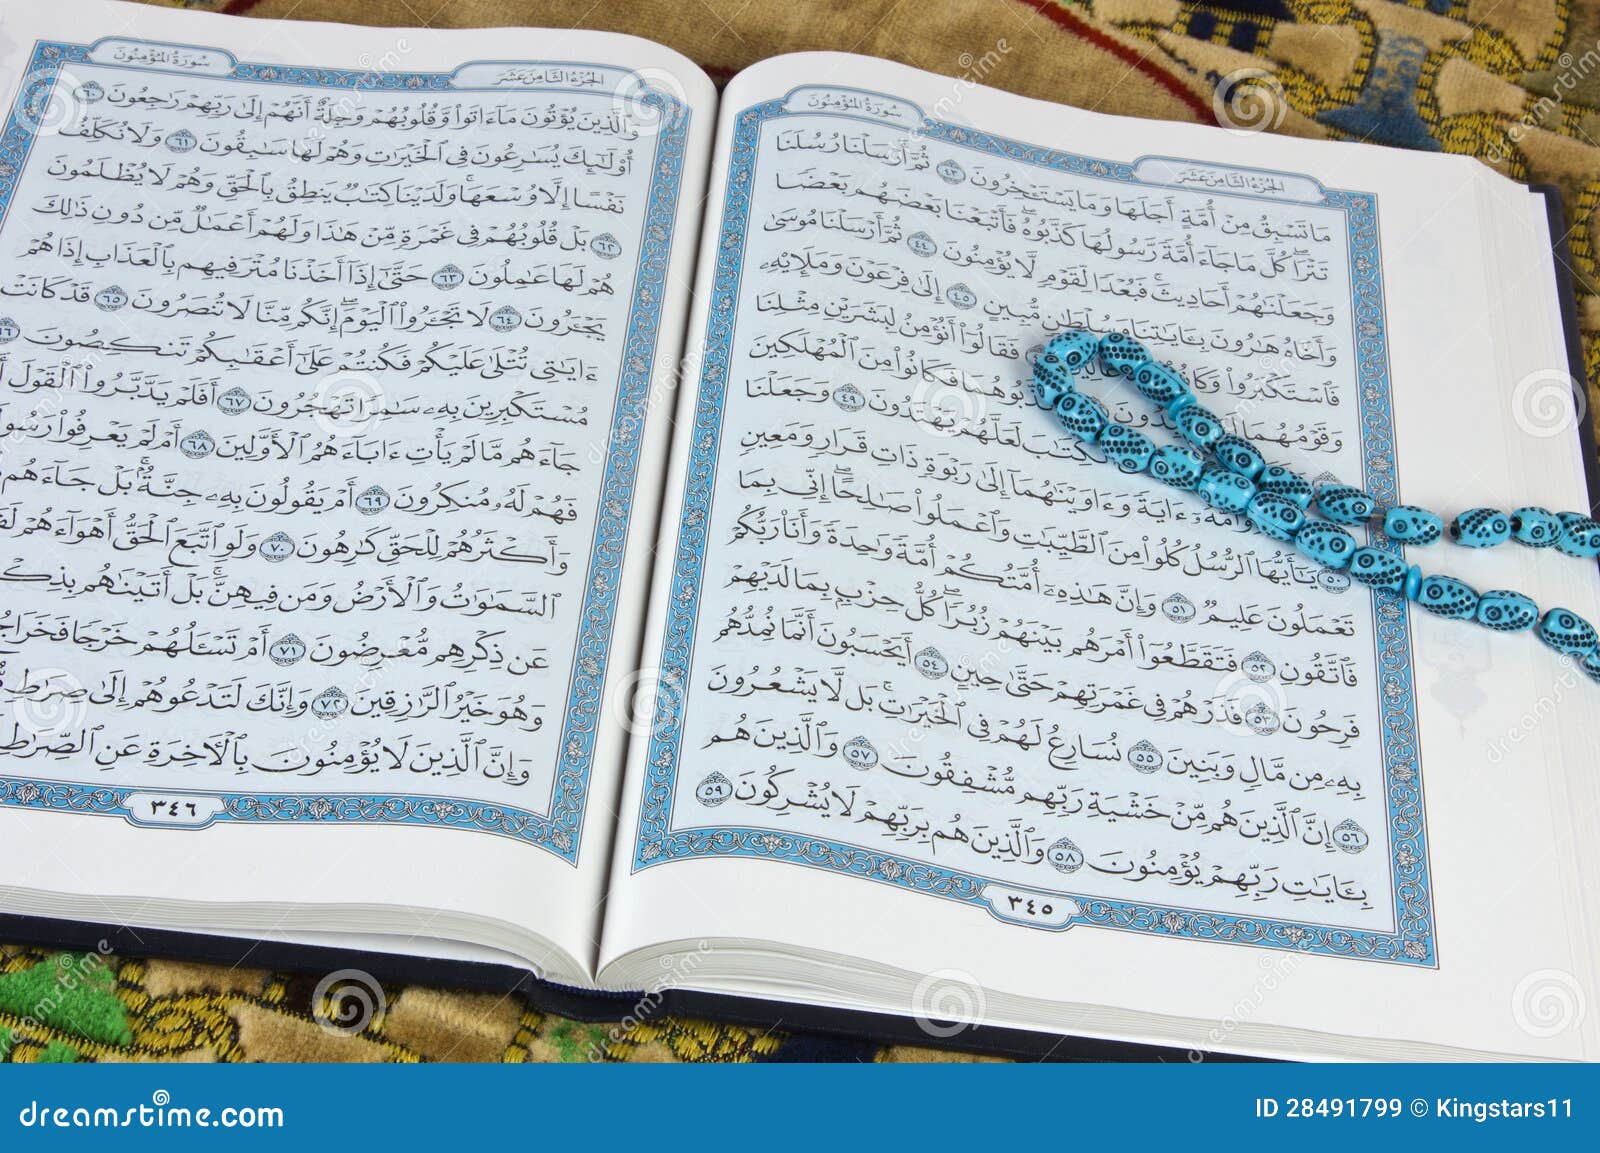 سورة المؤمنون
الجزء الثامن عشر
مَا تَسْبِقُ مِنْ أُمَّةٍ أَجَلَهَا وَمَا يَسْتَـْٔخِرُونَ ٤٣ ثُمَّ أَرْسَلْنَا رُسُلَنَا
تَتْرَا كُلَّ مَا جَآءَ أُمَّةً رَّسُولُهَا كَذَّبُوهُ فَأَتْبَعْنَا بَعْضَهُم بَعْضًا
وَجَعَلْنَٰهُمْ أَحَادِيثَ فَبُعْدًا لِّقَوْمٍ لَّا يُؤْمِنُونَ ٤٤ ثُمَّ أَرْسَلْنَا مُوسَىٰ
وَأَخَاهُ هَٰرُونَ بِـَٔايَٰتِنَا وَسُلْطَٰنٍ مُّبِينٍ ٤٥ إِلَىٰ فِرْعَوْنَ وَمَلَإِيْهِۦ
فَٱسْتَكْبَرُوا۟ وَكَانُوا۟ فَقَالُوٓا۟ أَنُؤْمِنُ لِبَشَرَيْنِ مِثْلِنَا
وَقَوْمُهُمَا فَكَانُوا۟ مِنَ ٱلْمُهْلَكِينَ
لَعَلَّهُمْ يَهْتَدُونَ ٤٩ وَجَعَلْنَا
وَأُمَّهُۥٓ ءَايَةً وَءَاوَيْنَٰهُمَآ إِلَىٰ رَبْوَةٍ ذَاتِ قَرَارٍ وَمَعِينٍ
٥٠ يَٰٓأَيُّهَا ٱلرُّسُلُ كُلُوا۟ مِنَ ٱلطَّيِّبَٰتِ وَٱعْمَلُوا۟ صَٰلِحًا إِنِّى بِمَا
تَعْمَلُونَ عَلِيمٌ ٥١ وَإِنَّ هَٰذِهِۦٓ أُمَّتُكُمْ أُمَّةً وَٰحِدَةً وَأَنَا۠ رَبُّكُمْ
فَٱتَّقُونِ ٥٢ فَتَقَطَّعُوٓا۟ أَمْرَهُم بَيْنَهُمْ زُبُرًا كُلُّ حِزْبٍۭ بِمَا لَدَيْهِمْ
فَرِحُونَ ٥٣ فَذَرْهُمْ فِى غَمْرَتِهِمْ حَتَّىٰ حِينٍ ٥٤ أَيَحْسَبُونَ أَنَّمَا نُمِدُّهُم
بِهِۦ مِن مَّالٍ وَبَنِينَ ٥٥ نُسَارِعُ لَهُمْ فِى ٱلْخَيْرَٰتِ بَل لَّا يَشْعُرُونَ
٥٦ إِنَّ ٱلَّذِينَ هُم مِّنْ خَشْيَةِ رَبِّهِم مُّشْفِقُونَ ٥٧ وَٱلَّذِينَ هُم
بِـَٔايَٰتِ رَبِّهِمْ يُؤْمِنُونَ ٥٨ وَٱلَّذِينَ هُم بِرَبِّهِمْ لَا يُشْرِكُونَ ٥٩
٣٤٥
الجزء الثامن عشر
سورة المؤمنون
وَٱلَّذِينَ يُؤْتُونَ مَآ ءَاتَوا۟ وَّقُلُوبُهُمْ وَجِلَةٌ أَنَّهُمْ إِلَىٰ رَبِّهِمْ رَٰجِعُونَ ٦٠
أُو۟لَٰٓئِكَ يُسَٰرِعُونَ فِى ٱلْخَيْرَٰتِ وَهُمْ لَهَا سَٰبِقُونَ ٦١ وَلَا نُكَلِّفُ
نَفْسًا إِلَّا وُسْعَهَا وَلَدَيْنَا كِتَٰبٌ يَنطِقُ بِٱلْحَقِّ وَهُمْ لَا يُظْلَمُونَ
٦٢ بَلْ قُلُوبُهُمْ فِى غَمْرَةٍ مِّنْ هَٰذَا وَلَهُمْ أَعْمَٰلٌ مِّن دُونِ ذَٰلِكَ
هُمْ لَهَا عَٰمِلُونَ ٦٣ حَتَّىٰٓ إِذَآ أَخَذْنَا مُتْرَفِيهِم بِٱلْعَذَابِ إِذَا هُمْ
يَجْـَٔرُونَ ٦٤ لَا تَجْـَٔرُوا۟ ٱلْيَوْمَ إِنَّكُم مِّنَّا لَا تُنصَرُونَ ٦٥ قَدْ كَانَتْ
ءَايَٰتِى تُتْلَىٰ عَلَيْكُمْ فَكُنتُمْ عَلَىٰٓ أَعْقَٰبِكُمْ تَنكِصُونَ ٦٦
مُسْتَكْبِرِينَ بِهِۦ سَٰمِرًا تَهْجُرُونَ ٦٧ أَفَلَمْ يَدَّبَّرُوا۟ ٱلْقَوْلَ
جَآءَهُم مَّا لَمْ يَأْتِ ءَابَآءَهُمُ ٱلْأَوَّلِينَ ٦٨ أَمْ لَمْ يَعْرِفُوا۟
فَهُمْ لَهُۥ مُنكِرُونَ ٦٩ أَمْ يَقُولُونَ بِهِۦ جِنَّةٌۢ بَلْ جَآءَهُم
وَأَكْثَرُهُمْ لِلْحَقِّ كَٰرِهُونَ ٧٠ وَلَوِ ٱتَّبَعَ ٱلْحَقُّ أَهْوَآءَهُمْ
ٱلسَّمَٰوَٰتُ وَٱلْأَرْضُ وَمَن فِيهِنَّ بَلْ أَتَيْنَٰهُم
عَن ذِكْرِهِم مُّعْرِضُونَ ٧١ أَمْ تَسْـَٔلُهُمْ خَرْجًا
وَهُوَ خَيْرُ ٱلرَّٰزِقِينَ ٧٢ وَإِنَّكَ لَتَدْعُوهُمْ إِلَىٰ صِرَٰطٍ
وَإِنَّ ٱلَّذِينَ لَا يُؤْمِنُونَ بِٱلْـَٔاخِرَةِ عَنِ ٱلصِّرَٰطِ
٣٤٦
dreamstime.com
ID 28491799 © Kingstars11